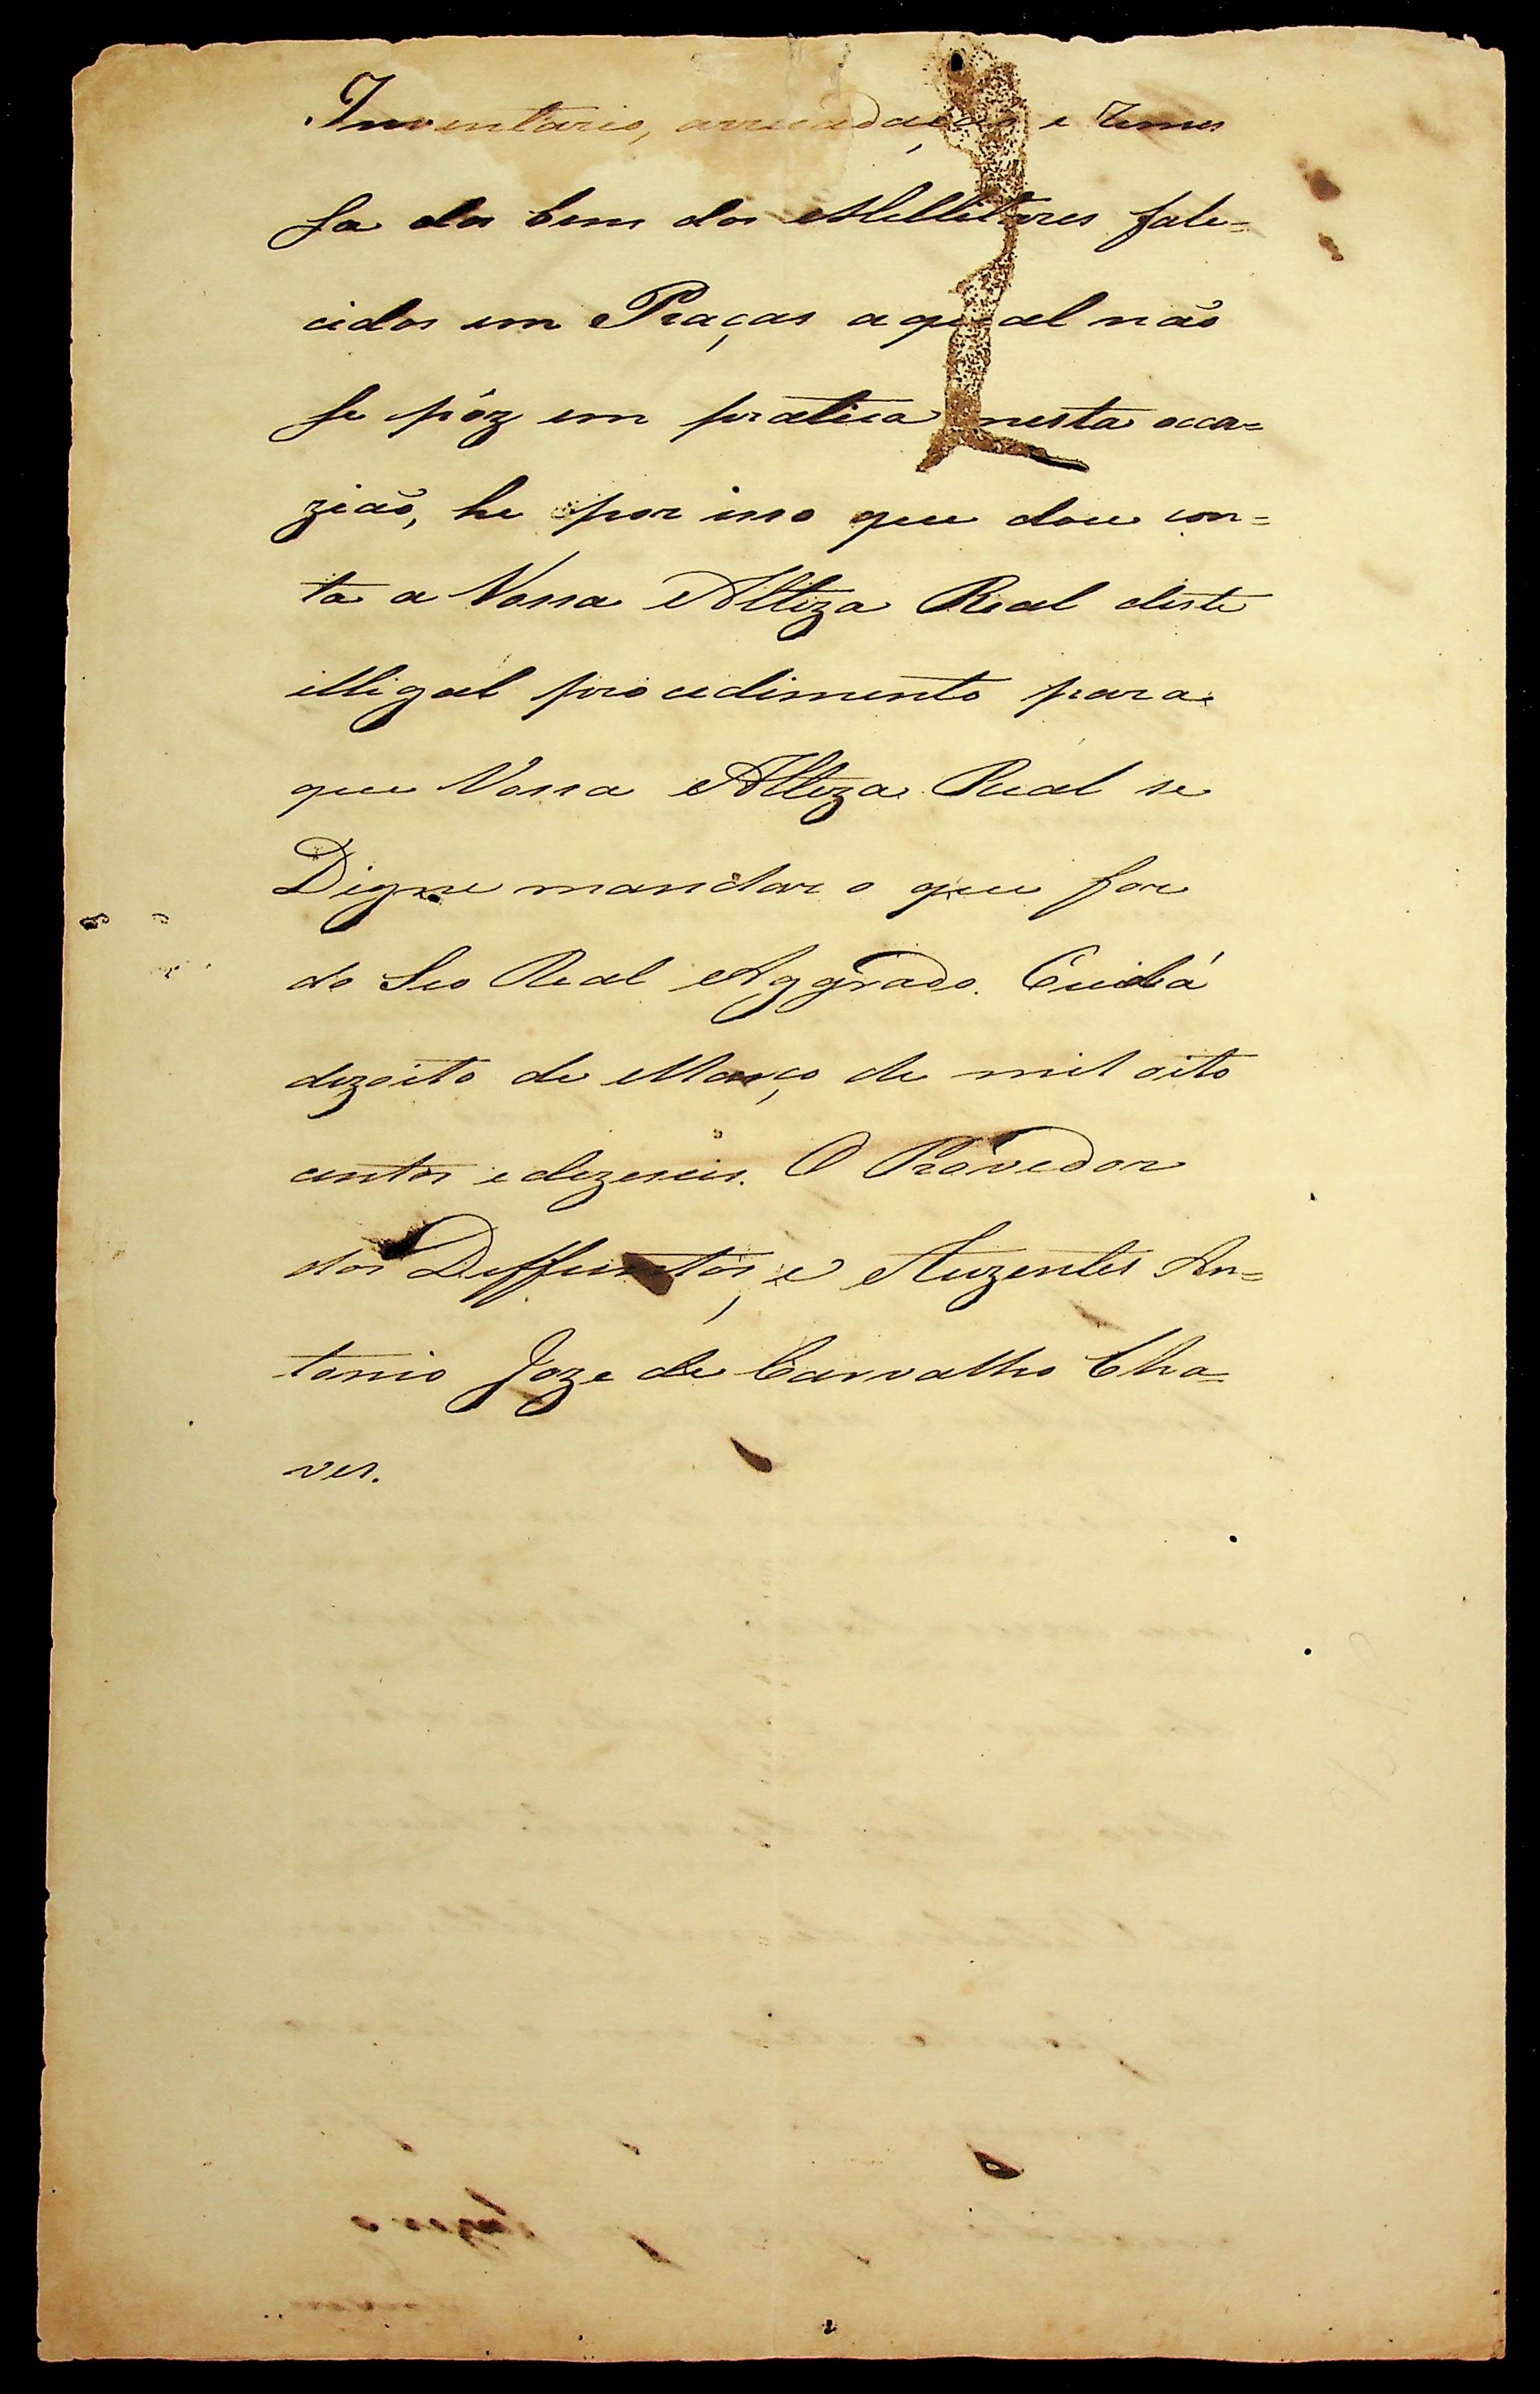 Inventario, arrecadação e remes
sa dos bens dos Mellitares fale=
cidos em Praças aqual não
se pôz em pratica nesta occa=
zião, he por isso que dou con=
ta a Vossa Alteza Real deste
illigal procedimento para
que Vossa Alteza Real se
Digne mandar o que for
do Seo Real Aggrado. Cuibá
dezoito de Março de mil oito
centos e dezeseis. O Provedor
dos Deffuntos, e Auzentes An=
tonio Joze de Carvalho Cha=
ves.